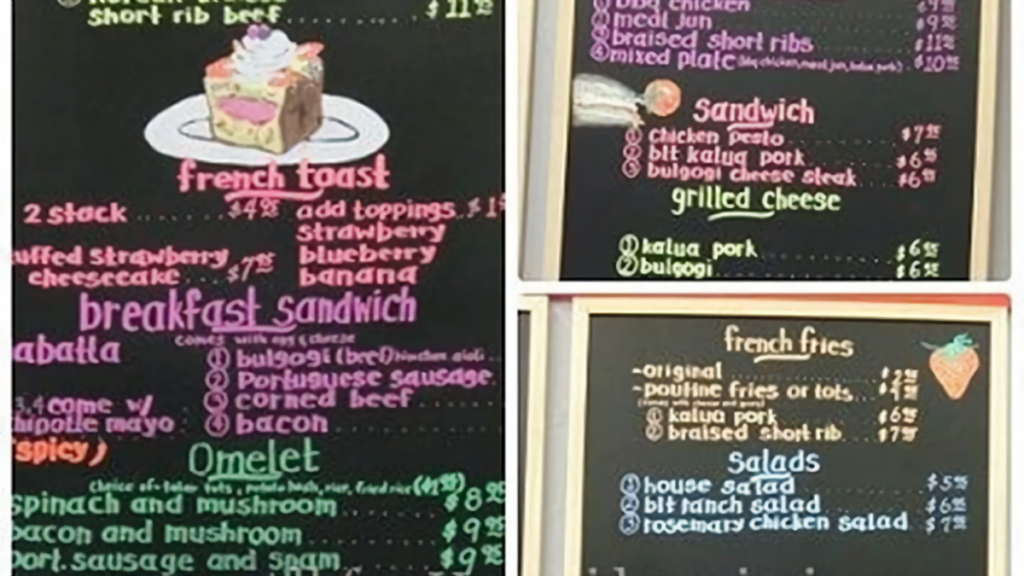 short rib beef $11.95
french toast
2 stack $4.95
uffed strawberry
cheesecake $7.95
add toppings $1
strawberry
blueberry
banana
breakfast sandwich
comes with egg & cheese
abatta
3,4 come w/
hipotle mayo
spicy)
① bulgogi (beef)
② Portuguese sausage
③ corned beef
④ bacon
Omelet
spinach and mushroom $8.95
bacon and mushroom $9.95
port. sausage and spam $9.95
① bbq chicken
② meat jun $9
③ braised short ribs $11
④ mixed plate $10
Sandwich
① chicken pesto $7.95
② blt kalua pork $6.95
③ bulgogi cheese steak $6
grilled cheese
① kalua pork $6.95
② bulgogi $6.95
french fries
~original
~poutine fries or tots
① kalua pork $6.95
② braised short rib $7.95
Salads
① house salad $5.95
② blt ranch salad $6.95
③ rosemary chicken salad $7.95